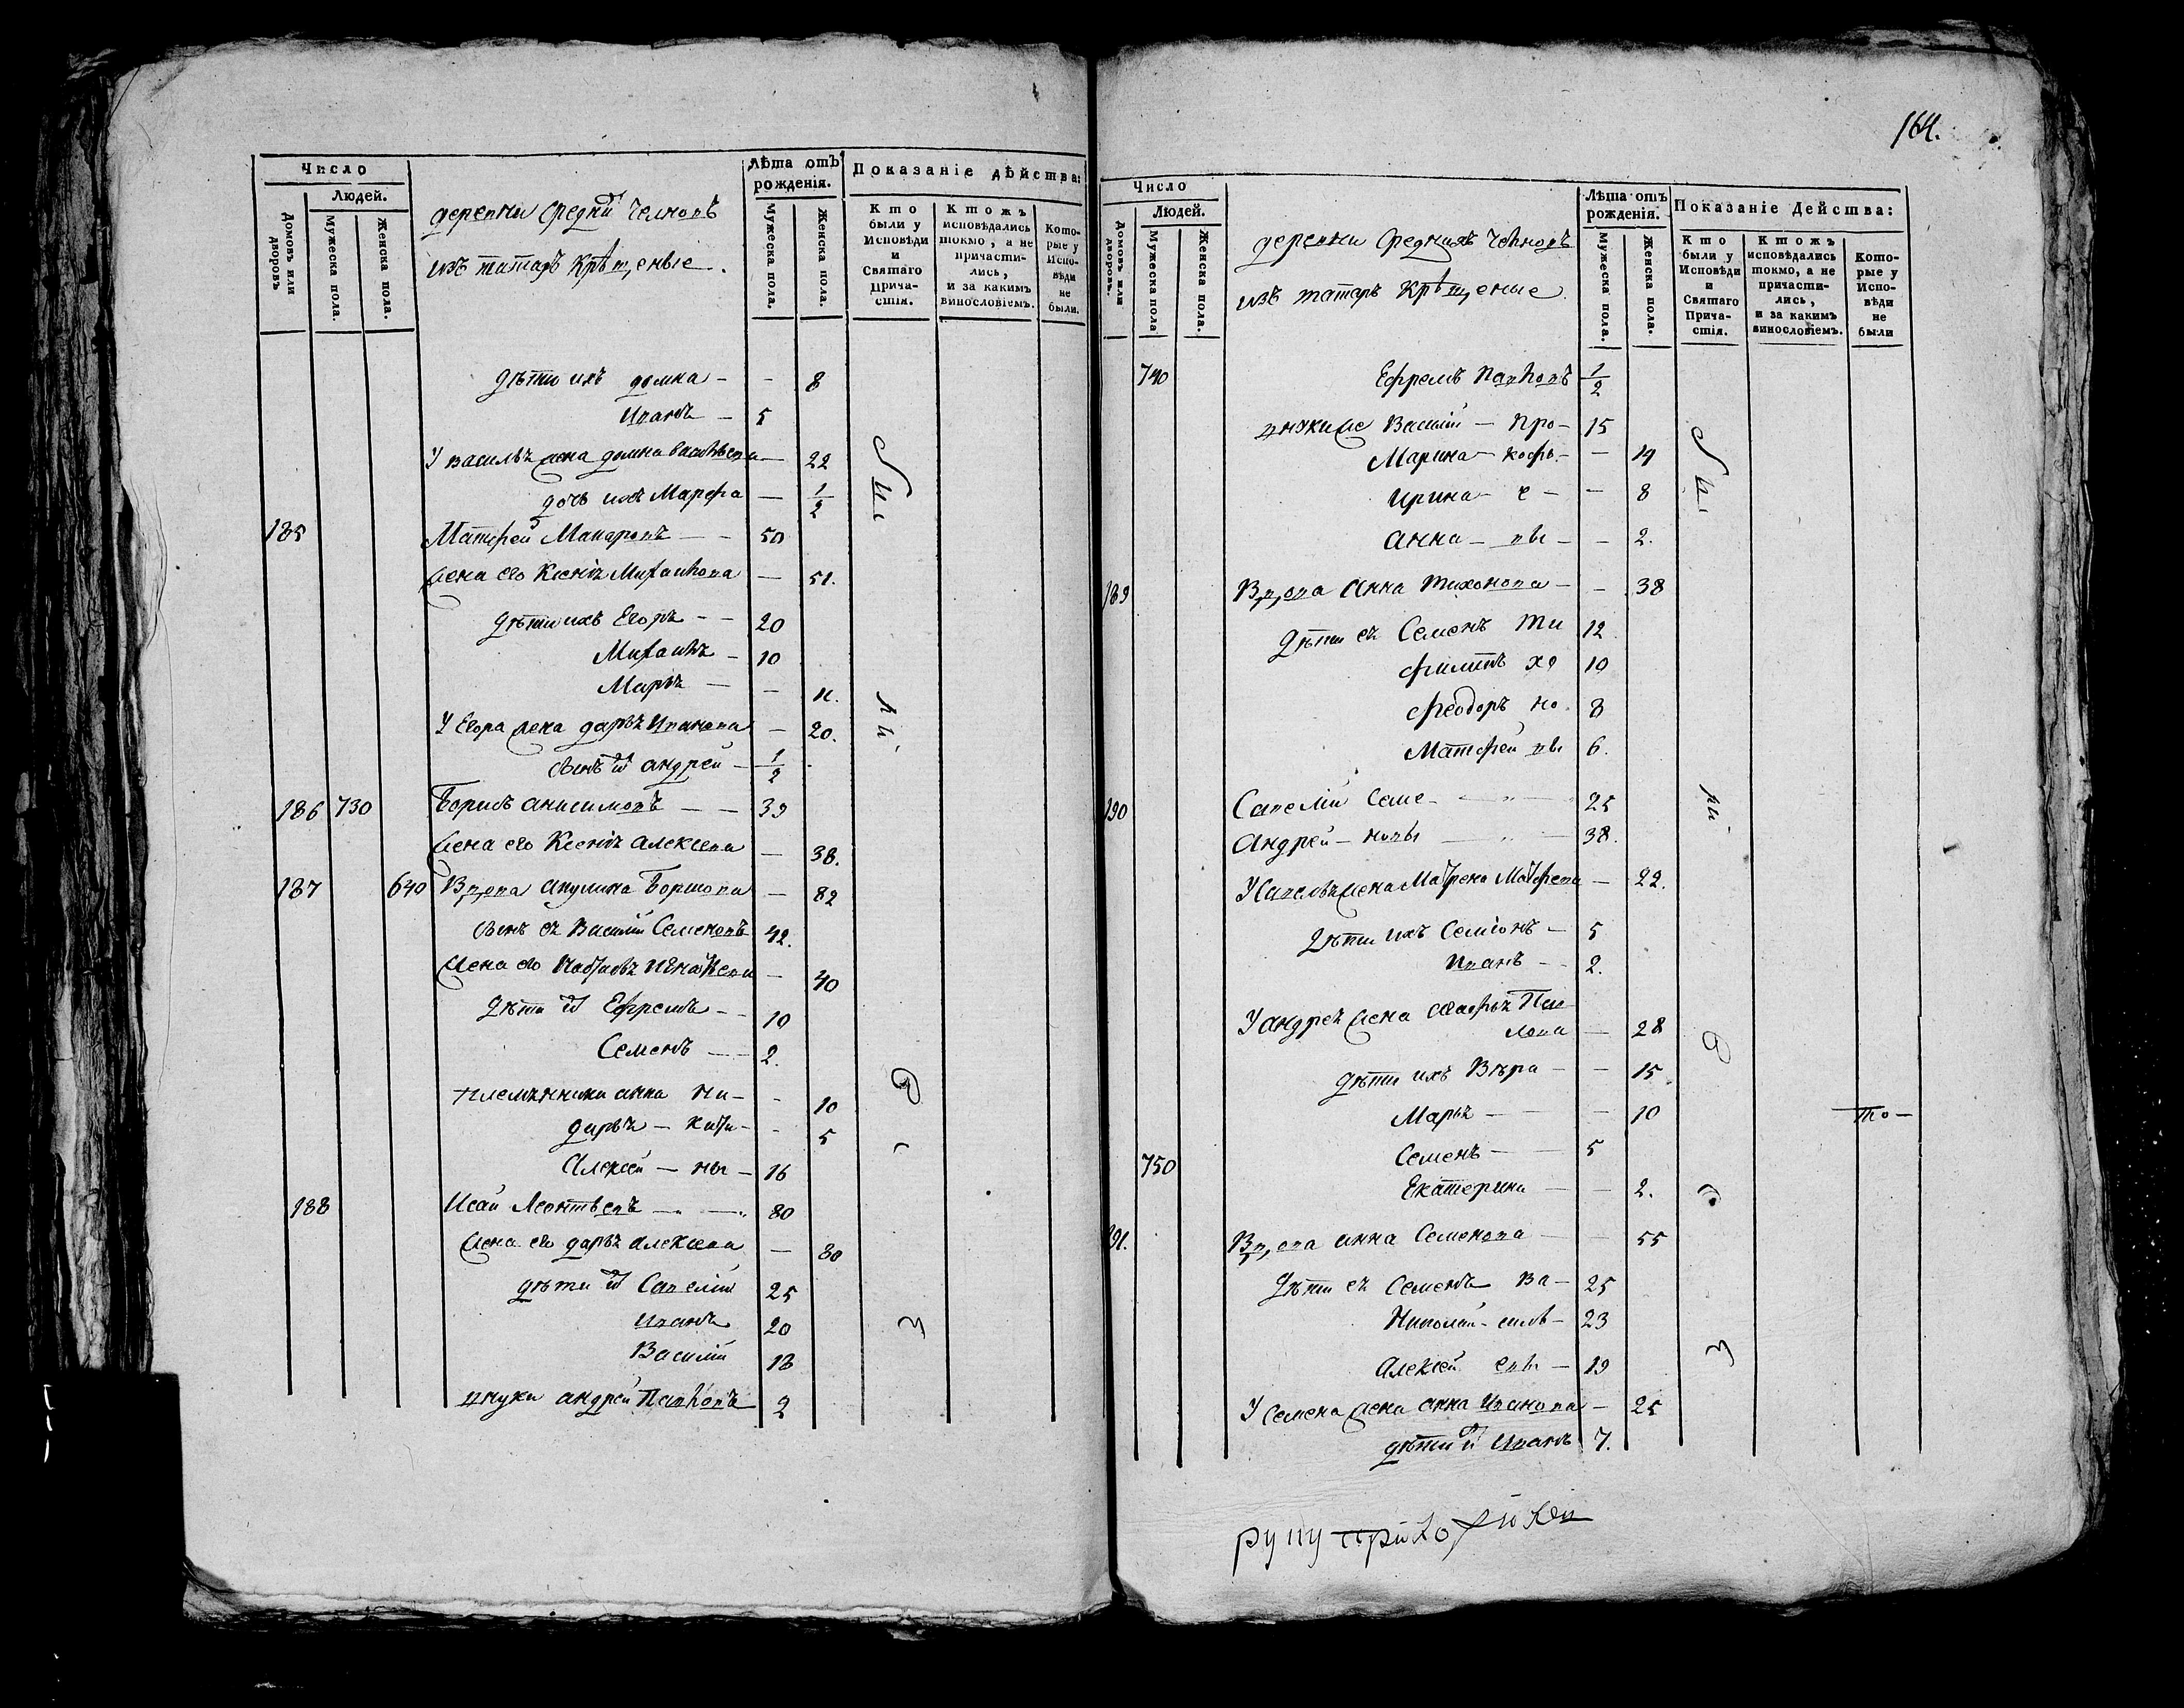 Число
Людей.
Домовъ или дворовъ
Мужеска пола.
Женска пола.
деревни средни Челновъ
изъ татаръ крѣщеные.
Лѣта отъ рожденія.
Мужеска пола.
Женска пола.
Показаніе дѣйства:
Кто были у Исповѣди и Святаго Прича-стія.
Ктожъ исповѣдались токмо, а не причасти-лись, и за какимъ винословіемъ.
Кото-рые у Испо-вѣди не были.
дѣти ихъ домна - - 8
Иванъ - 5
У василья жена домна васильева - 22
дочь ихъ Марфа - 1/2
185 Матфей Макаровъ - - 50
жена его Ксенія Михаилова - 51.
дѣти ихъ Егоръ - - 20
Михаилъ - 10
Марья - - 11.
У Егора жена дарья Иванова - 20.
сынъ андрей - 1/2
186 730 Борисъ анисимовъ - - 39
жена его Ксенія алексеева - 38.
187 640 Вдова акулина Борисова - 82
сынъ ея Василій Семеновъ 42.
жена его Игнатьева - 40
дѣти Ефремъ - - 10
Семенъ - - 2.
племянники анна Ни- - 10
дарья - кити- - 5
Алексей - ны - 16
188 Исай Леонтьевъ - - 80
жена его дарья алексеева - 80
дѣти Савелій 25
иванъ 20
Василій 18
внуки андрей Павловъ 2
164.
Число
Людей.
Домовъ или дворовъ.
Мужеска пола
Женска пола.
деревни Среднихъ Челновъ
изъ татаръ крѣщеные.
Лѣта отъ рожденія.
Мужеска пола.
Женска пола.
Показаніе Действа:
Кто были у Исповѣди и Святаго Прича-стія.
Ктожъ исповѣдались токмо, а не причасти-лись, и за какимъ винословіемъ.
Кото-рые у Испо-вѣди не были
740 Ефремъ Павловъ 1/2
Василій - Про- 15
Марина - кофь- - 14
ирина - е - - 8
анна - вы - - 2.
189 Вдова Анна Тихонова - - 38
Дѣти ея Семенъ Ти 12
Филипъ хо 10
Феодоръ но 8
Матфей вы 6.
190 Савелій Семе- 25
Андрей - новы 38.
У Савелья жена Матрена Матфеева - 22.
дѣти ихъ Семіонъ - 5
Иванъ - 2.
У андрея жена
лова - 28
дѣти ихъ Вѣра - - 15
Марья - - 10 то-
750 Семенъ - - 5
Екатерина - - 2.
191. Вдова анна Семенова - - 55
Дѣти ея Семенъ Ва- 25
Николай - силь- 23
Алексей евы - 19
У Семена жена анна Иванова - 25
дѣти Иванъ 7.
руку приложилъ